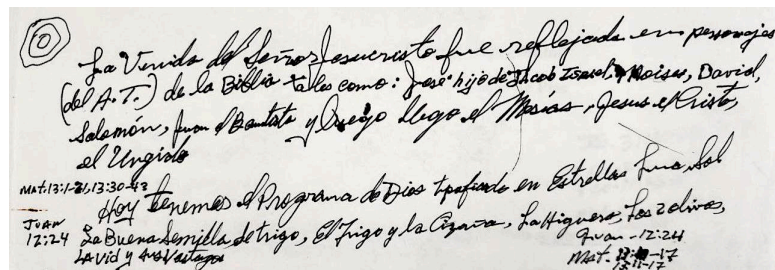 La Venida del Señor Jesucristo fue reflejada en personajes
(del A.T.) de la Biblia tales como: José hijo de Jacob Israel, Moises, David,
Salomón, Juan el Bautista y luego llego el Mesías, Jesus el Cristo,
el Ungido
Mat. 13:1-21, 13:30-43
Hoy tenemos el Programa de Dios tipificado en Estrellas Luna, Sol
JUAN
12:24
La Buena Semilla de trigo, El Trigo y la Cizaña, La Higuera, Los 2 olivos,
LA Vid y sus Vastagos
Juan-12:24
Mat. -17